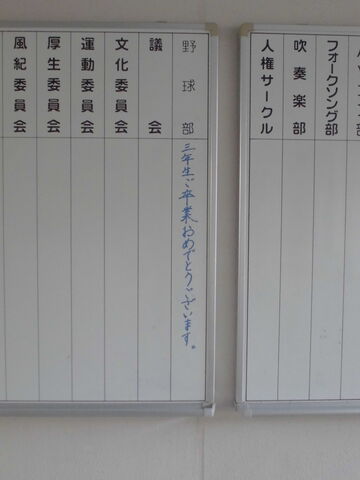 フォークソング部
吹奏楽部
人権サークル
野球部 三年生ご卒業おめでとうございます。
議会
文化委員会
運動委員会
厚生委員会
風紀委員会